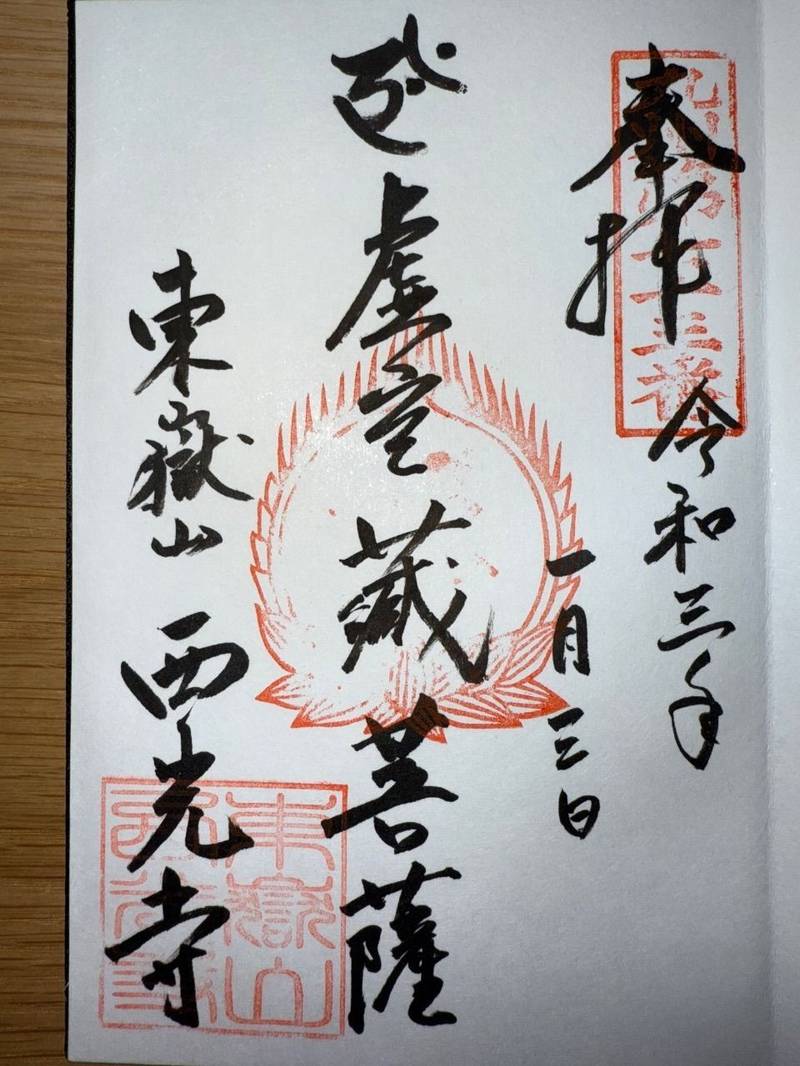 奉拝
令和三年
一月三日
虚空藏菩薩
東嶽山 西光寺
東嶽山